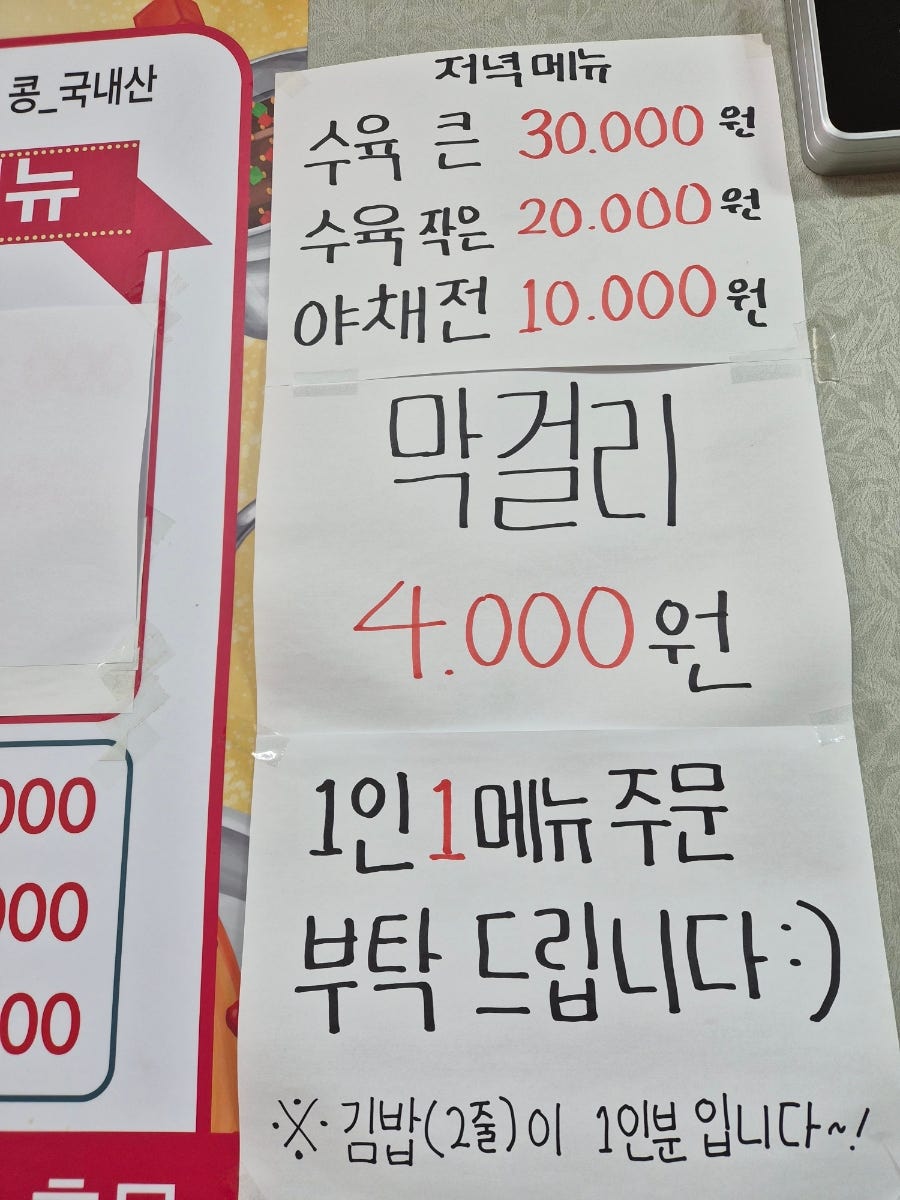 콩_국내산
뉴
000
000
00
저녁메뉴
수육 큰 30.000원
수육 작은 20.000원
야채전 10.000원
막걸리
4.000원
1인1메뉴주문
부탁 드립니다:)
※ 김밥(2줄)이 1인분입니다~!